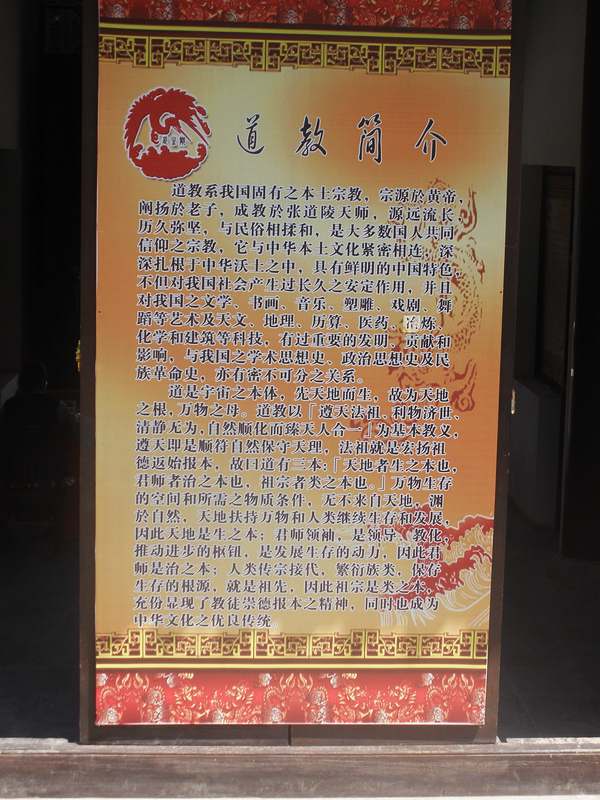 道教简介
道教系我国固有之本土宗教，宗源於黄帝，
阐扬於老子，成教於张道陵天师，源远流长，
历久弥坚，与民俗相揉和，是大多数国人共同
信仰之宗教，它与中华本土文化紧密相连，深
深扎根于中华沃土之中，具有鲜明的中国特色，
不但对我国社会产生过长久之安定作用，并且
对我国之文学、书画、音乐、塑雕、戏剧、舞
蹈等艺术及天文、地理、历算、医药、冶炼、
化学和建筑等科技，有过重要的发明、贡献和
影响，与我国之学术思想史、政治思想史及民
族革命史，亦有密不可分之关系。
道是宇宙之本体，先天地而生，故为天地
之根，万物之母。道教以「遵天法祖、利物济世、
清静无为，自然顺化而臻天人合一」为基本教义，
遵天即是顺符自然保守天理，法祖就是宏扬祖
德返始报本，故曰道有三本：「天地者生之本也，
君师者治之本也，祖宗者类之本也。」万物生存
的空间和所需之物质条件，无不来自天地，渊
於自然，天地扶持万物和人类继续生存和发展，
因此天地是生之本；君师领袖，是领导、教化，
推动进步的枢钮，是发展生存的动力，因此君
师是治之本；人类传宗接代，繁衍族类，保存
生存的根源，就是祖先，因此祖宗是类之本，
充份显现了教徒崇德报本之精神，同时也成为
中华文化之优良传统。